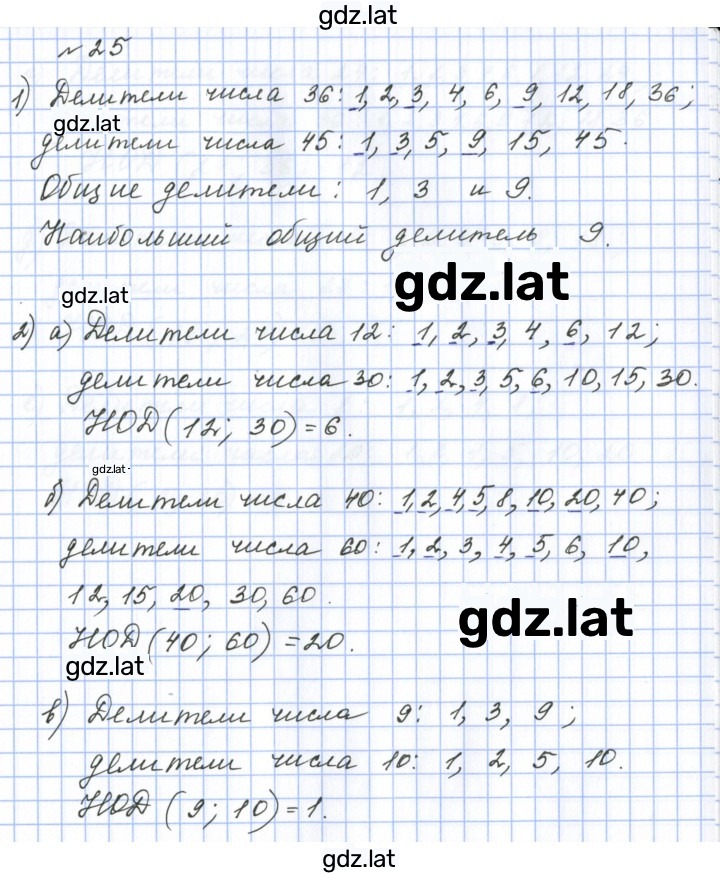 gdz.lat
№ 25
1) Делители числа 36: 1, 2, 3, 4, 6, 9, 12, 18, 36;
gdz.lat
делители числа 45: 1, 3, 5, 9, 15, 45.
Общие делители: 1, 3 и 9.
Наибольший общий делитель 9.
gdz.lat
gdz.lat
2) а) Делители числа 12: 1, 2, 3, 4, 6, 12;
делители числа 30: 1, 2, 3, 5, 6, 10, 15, 30.
НОД (12; 30) = 6.
gdz.lat
б) Делители числа 40: 1, 2, 4, 5, 8, 10, 20, 40;
делители числа 60: 1, 2, 3, 4, 5, 6, 10,
12, 15, 20, 30, 60.
gdz.lat
НОД (40; 60) = 20.
gdz.lat
в) Делители числа 9: 1, 3, 9;
делители числа 10: 1, 2, 5, 10.
НОД (9; 10) = 1.
gdz.lat